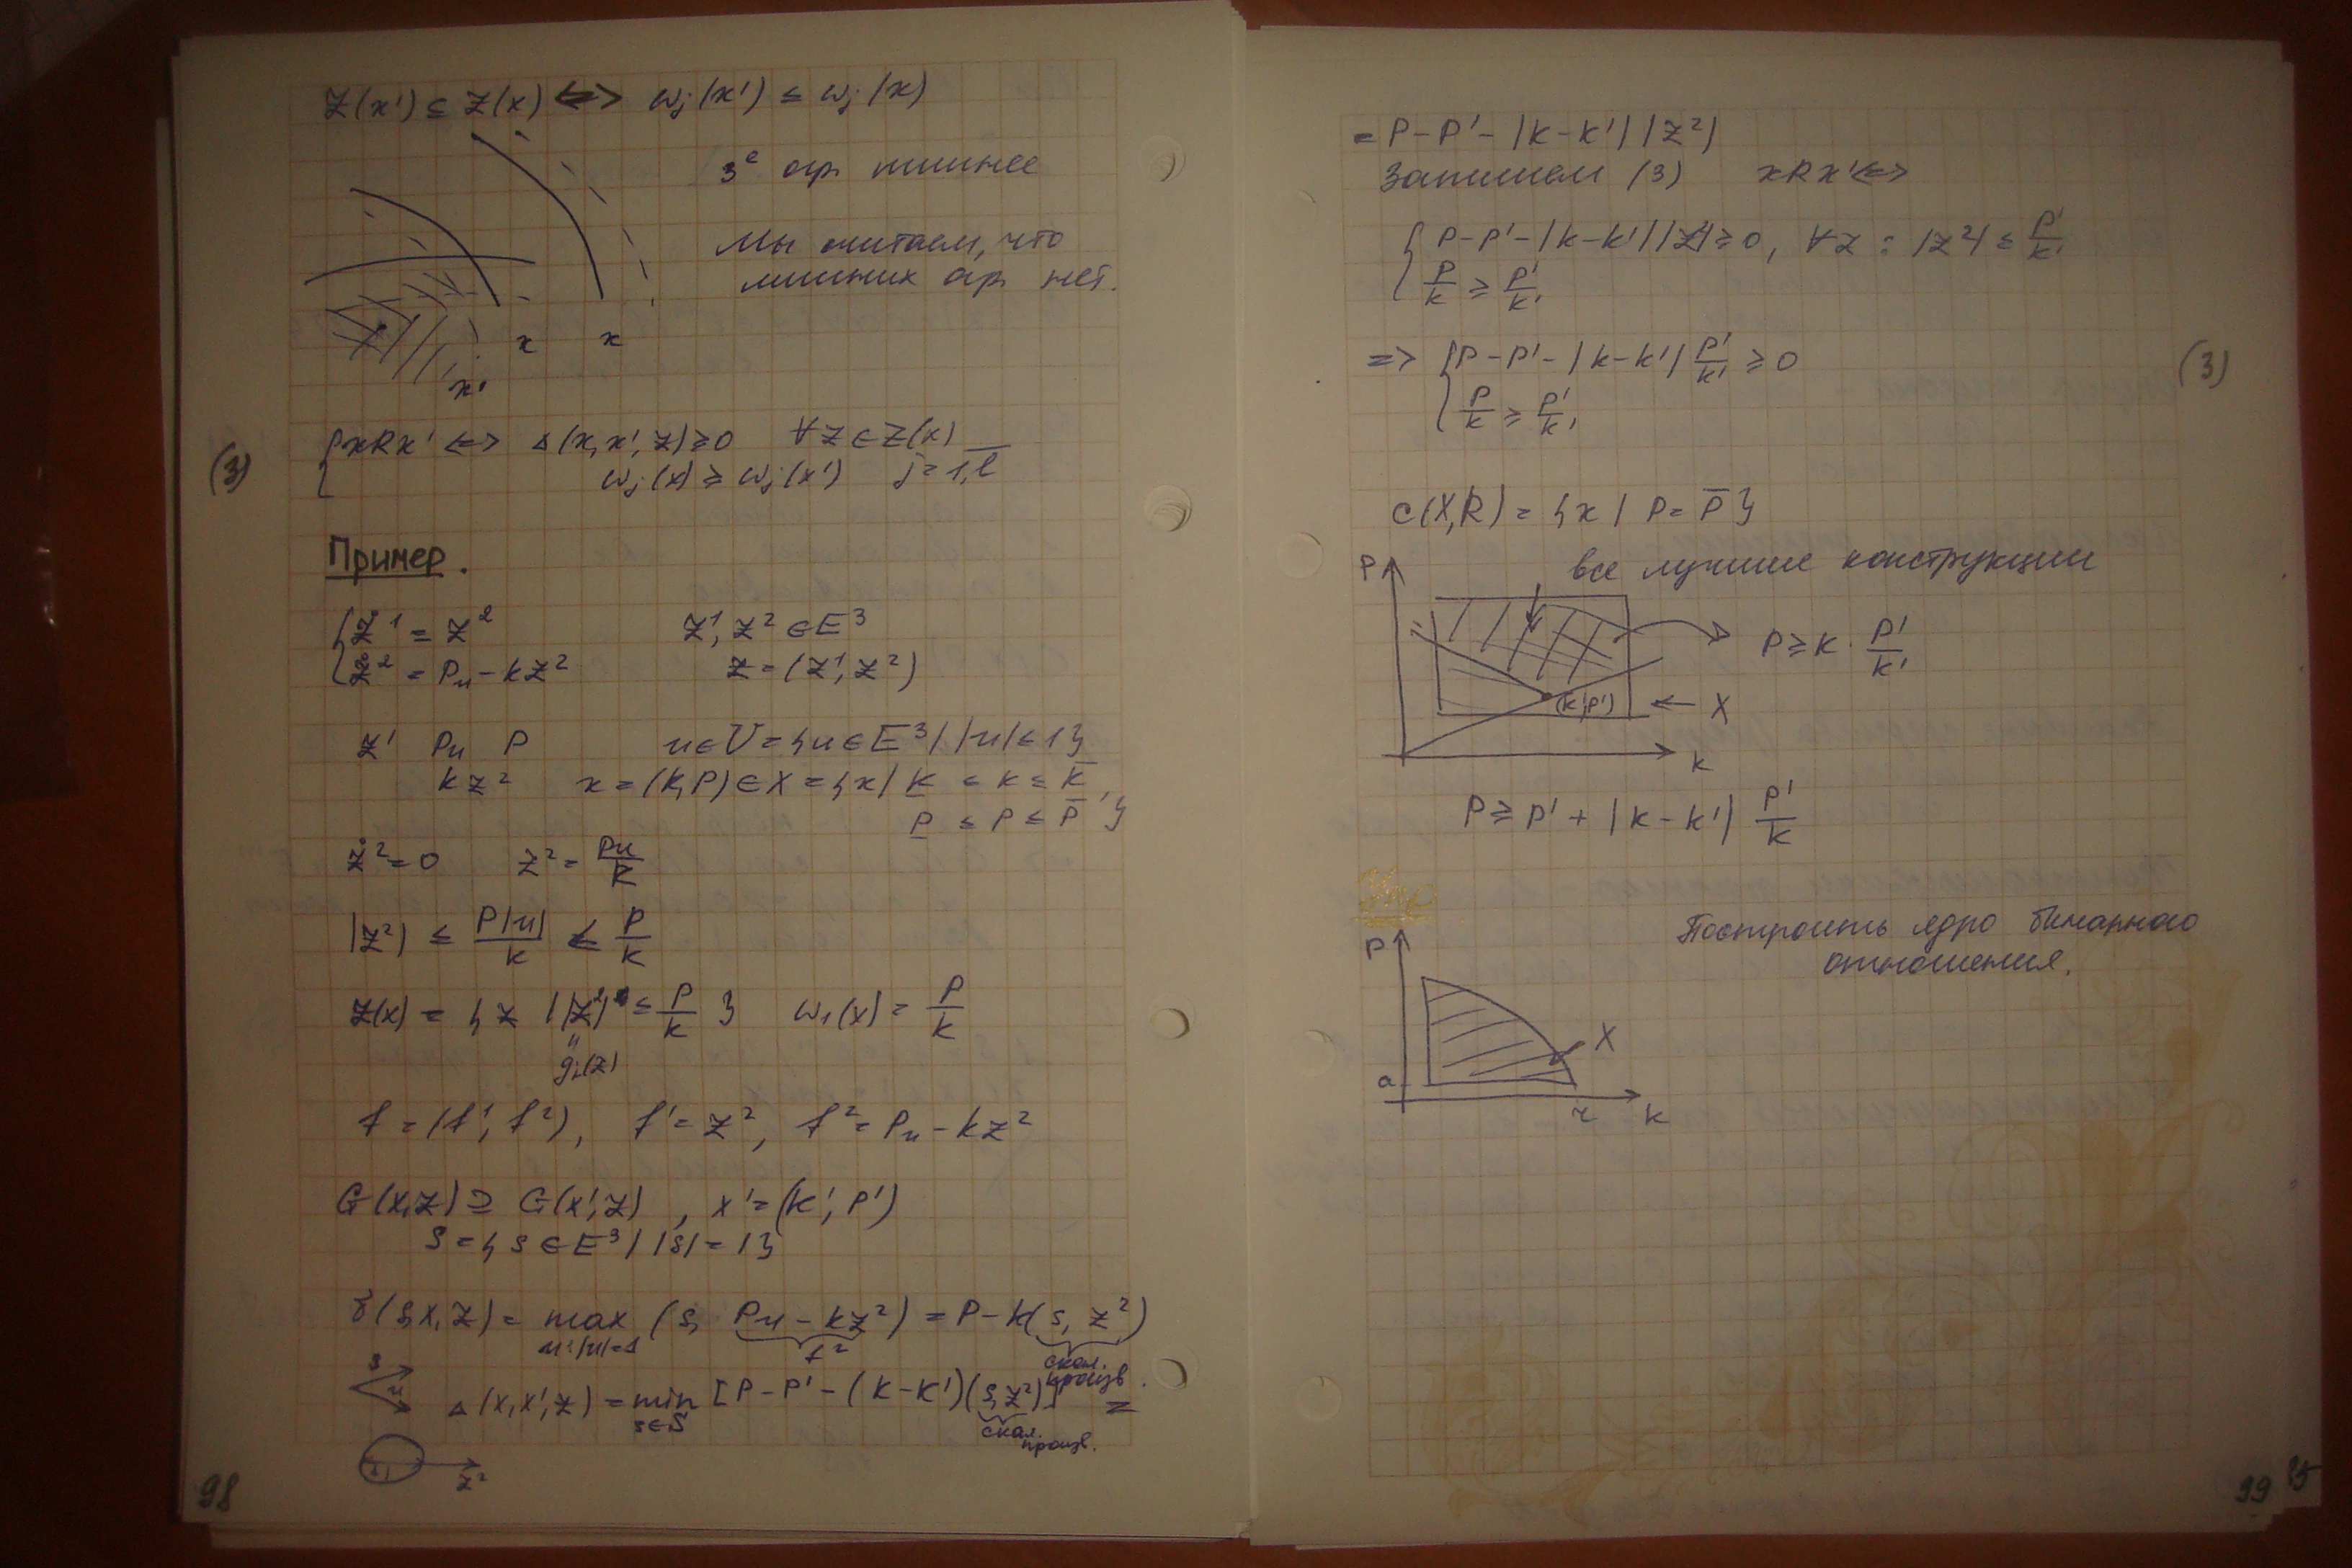 Z(x') ⊆ Z(x) <=> ωj(x') ≤ ωj(x)
3е огр лишнее
Мы считаем, что
лишних огр нет.
x x
x'
(3) { xRx' <=> Δ(x, x', z) ≥ 0 ∀z ∈ Z(x)
ωj(x) ≥ ωj(x') j = 1,l
Пример.
{ ż¹ = z² z¹, z² ∈ E³
ż² = Pu - kz² z = (z¹, z²)
z¹ Pu P u ∈ U = {u ∈ E³ | |u| ≤ 1}
kz² x = (k, P) ∈ X = {x | k ≤ k ≤ k̄,
P ≤ P ≤ P̄ }
ż² = 0 z² = Pu/k
|z²| ≤ P|u|/k ≤ P/k
Z(x) = {z | |z²| ≤ P/k } ω₁(x) = P/k
"
g₁(z)
f = (f¹, f²), f¹ = z², f² = Pu - kz²
G(x,z) ⊇ G(x',z) , x' = (k', P')
S = {s ∈ E³ | |s| = 1}
γ(s,x,z) = max (s, Pu - kz²) = P - k(s, z²)
u:|u|=1 f² скал. произв.
s
u
Δ(x,x',z) = min [P - P' - (k - k')(s,z²)] =
s∈S скал. произв.
z²
98
= P - P' - |k - k'| |z²|
Запишем (3) xRx' <=>
{ P - P' - |k - k'| |z²| ≥ 0, ∀z : |z²| ≤ P'/k'
P/k ≥ P'/k'
=> { P - P' - |k - k'| P'/k' ≥ 0 (3)
P/k ≥ P'/k'
C(X,R) = {x | P = P̄}
P все лучшие конструкции
P ≥ k · P'/k'
(k',P') ← X
k
P ≥ P' + |k - k'| P'/k
Упр
P Построить ядро бинарного
отношения.
X
a
r k
99 85